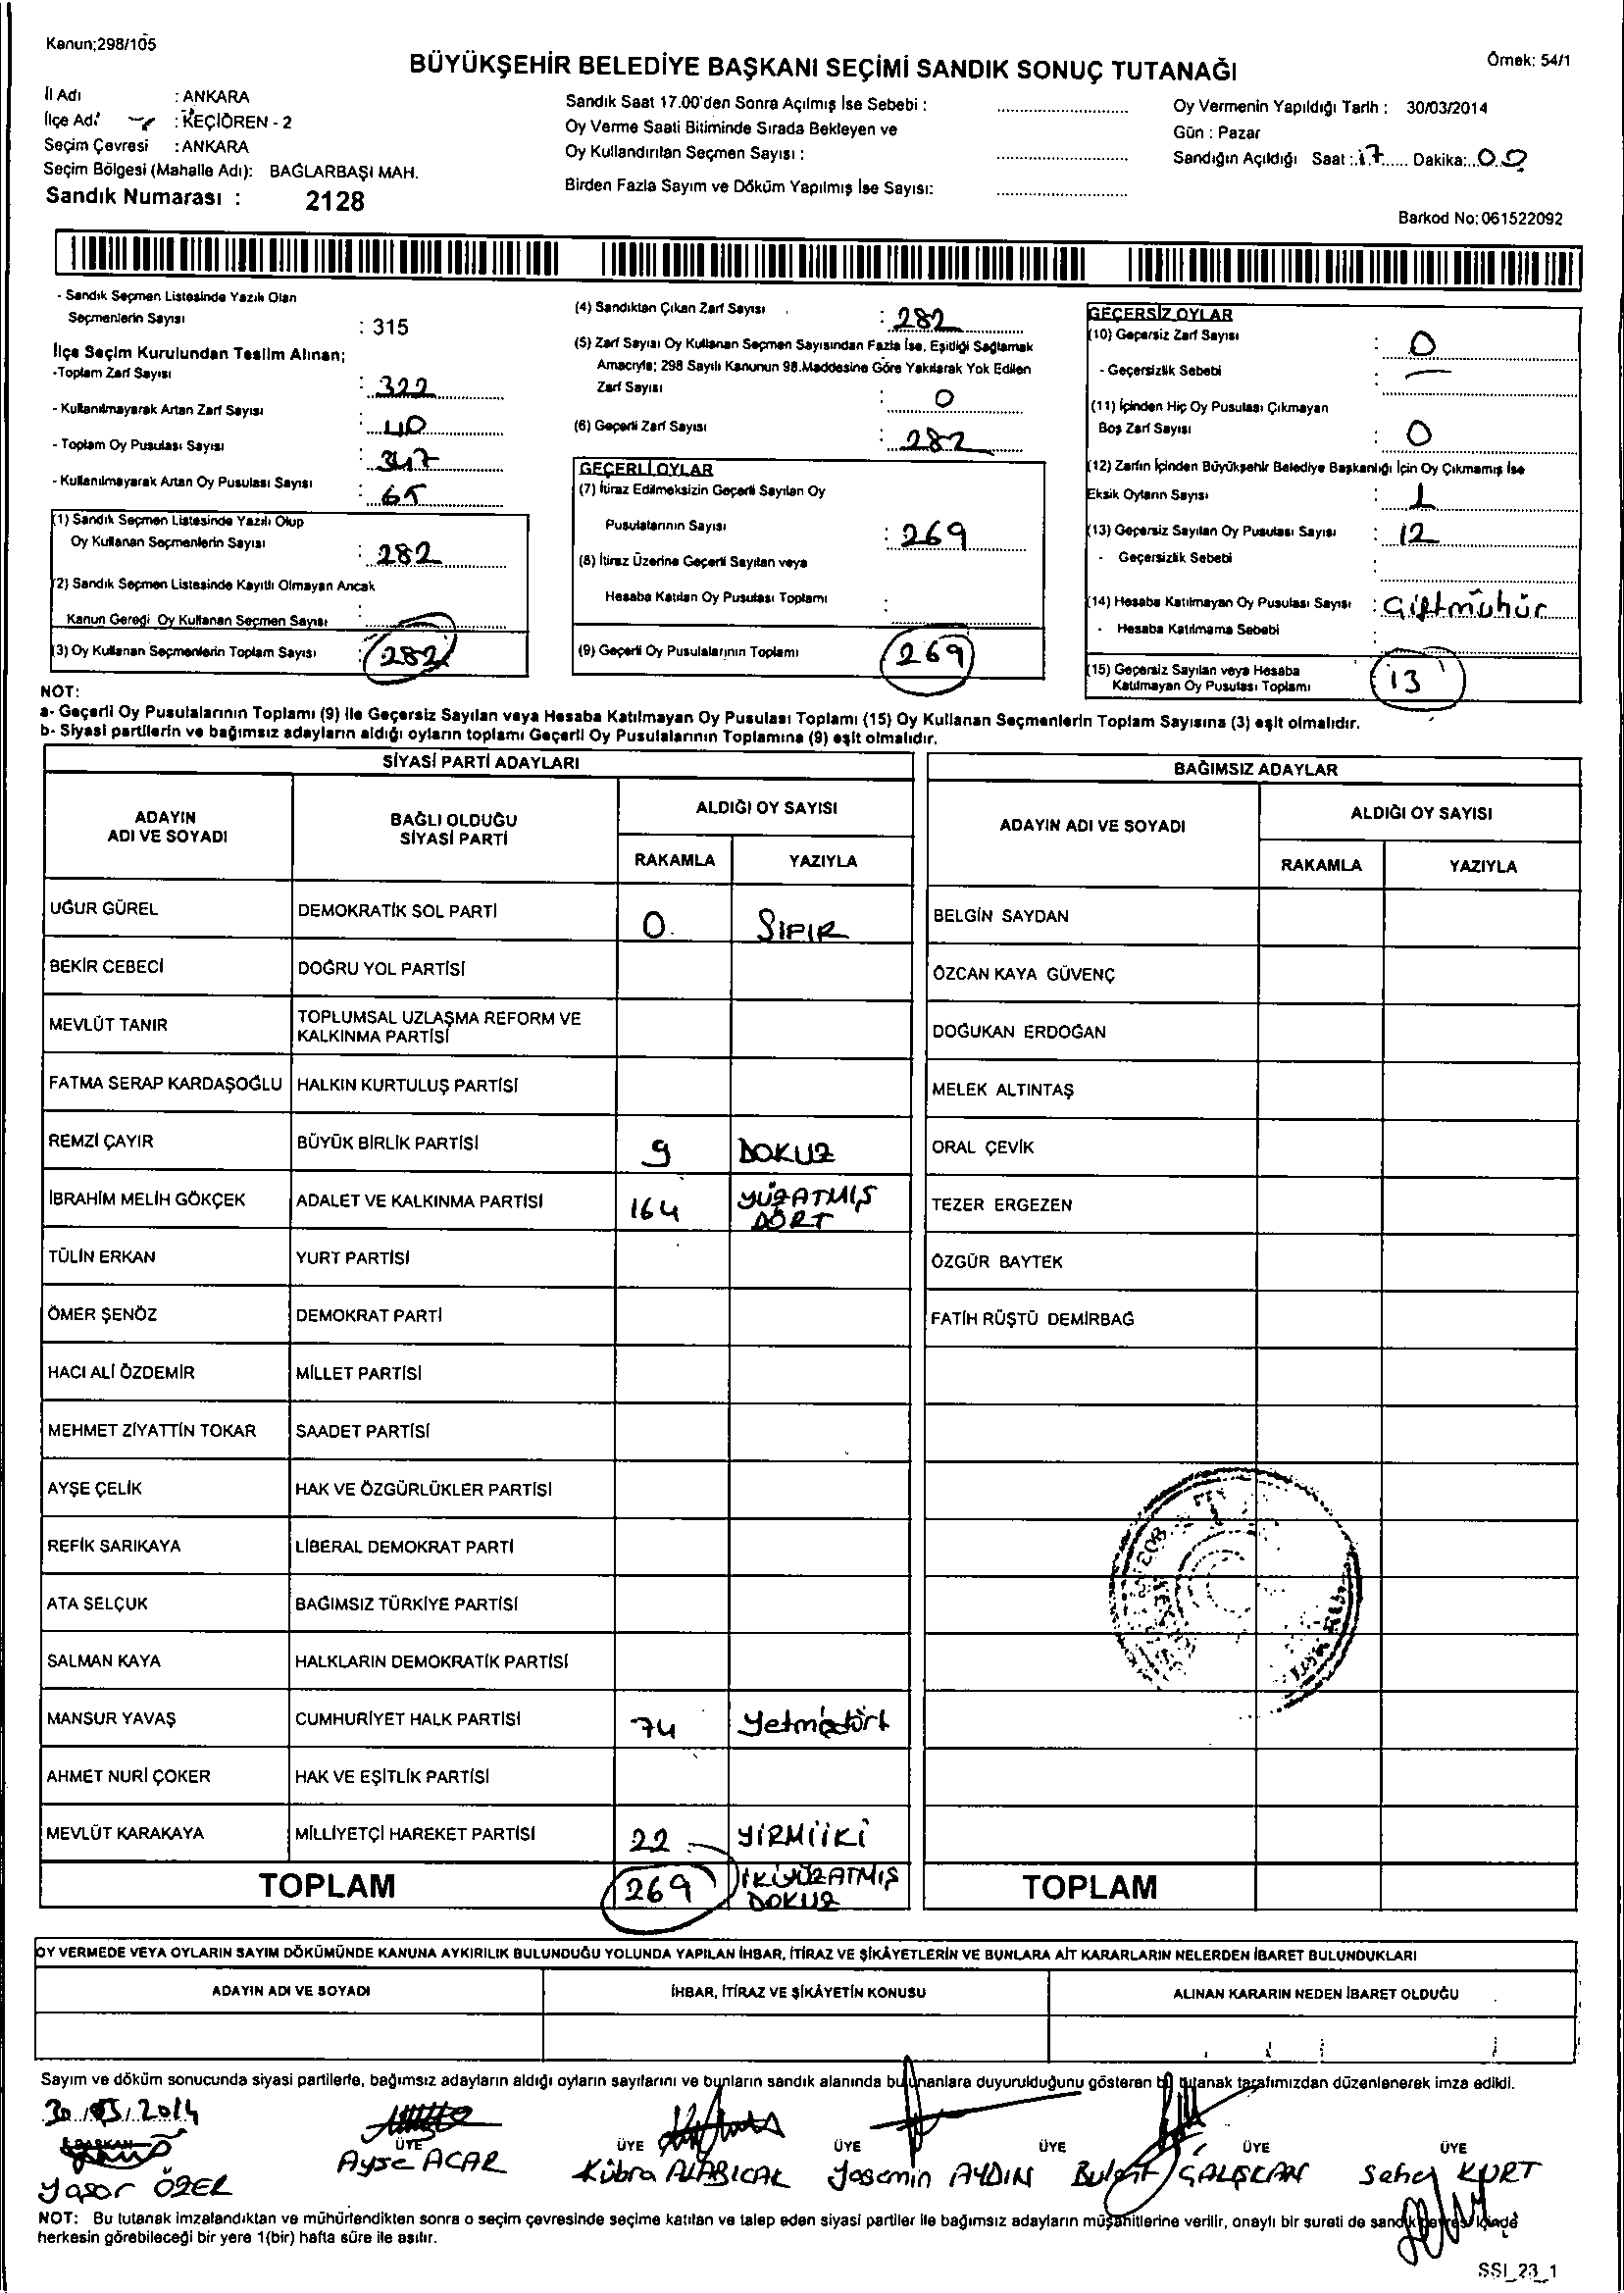 Kanun;298/105
BÜYÜKŞEHİR BELEDİYE BAŞKANI SEÇİMİ SANDIK SONUÇ TUTANAĞI
Örnek: 54/1
İl Adı : ANKARA
İlçe Adı : KEÇİÖREN - 2
Seçim Çevresi : ANKARA
Seçim Bölgesi (Mahalle Adı): BAĞLARBAŞI MAH.
Sandık Numarası : 2128
Sandık Saat 17.00'den Sonra Açılmış İse Sebebi :
Oy Verme Saati Bitiminde Sırada Bekleyen ve
Oy Kullandırılan Seçmen Sayısı :
Birden Fazla Sayım ve Döküm Yapılmış İse Sayısı:
Oy Vermenin Yapıldığı Tarih : 30/03/2014
Gün : Pazar
Sandığın Açıldığı Saat : 17 Dakika: 00
Barkod No: 061522092
- Sandık Seçmen Listesinde Yazılı Olan
Seçmenlerin Sayısı : 315
İlçe Seçim Kurulundan Teslim Alınan;
-Toplam Zarf Sayısı : 322
- Kullanılmayarak Artan Zarf Sayısı : 40
- Toplam Oy Pusulası Sayısı : 347
- Kullanılmayarak Artan Oy Pusulası Sayısı : 65
(1) Sandık Seçmen Listesinde Yazılı Olup
Oy Kullanan Seçmenlerin Sayısı : 282
(2) Sandık Seçmen Listesinde Kayıtlı Olmayan Ancak
Kanun Gereği Oy Kullanan Seçmen Sayısı :
(3) Oy Kullanan Seçmenlerin Toplam Sayısı : 282
(4) Sandıktan Çıkan Zarf Sayısı : 282
(5) Zarf Sayısı Oy Kullanan Seçmen Sayısından Fazla İse, Eşitliği Sağlamak
Amacıyla; 298 Sayılı Kanunun 98.Maddesine Göre Yakılarak Yok Edilen
Zarf Sayısı : 0
(6) Geçerli Zarf Sayısı : 282
GEÇERLİ OYLAR
(7) İtiraz Edilmeksizin Geçerli Sayılan Oy
Pusulalarının Sayısı : 269
(8) İtiraz Üzerine Geçerli Sayılan veya
Hesaba Katılan Oy Pusulası Toplamı :
(9) Geçerli Oy Pusulalarının Toplamı 269
GEÇERSİZ OYLAR
(10) Geçersiz Zarf Sayısı : 0
- Geçersizlik Sebebi : —
(11) İçinden Hiç Oy Pusulası Çıkmayan
Boş Zarf Sayısı : 0
(12) Zarfın İçinden Büyükşehir Belediye Başkanlığı İçin Oy Çıkmamış İse
Eksik Oyların Sayısı : 1
(13) Geçersiz Sayılan Oy Pusulası Sayısı : 12
- Geçersizlik Sebebi :
(14) Hesaba Katılmayan Oy Pusulası Sayısı : Çiftmühür
- Hesaba Katılmama Sebebi :
(15) Geçersiz Sayılan veya Hesaba
Katılmayan Oy Pusulası Toplamı : 13
NOT:
a- Geçerli Oy Pusulalarının Toplamı (9) ile Geçersiz Sayılan veya Hesaba Katılmayan Oy Pusulası Toplamı (15) Oy Kullanan Seçmenlerin Toplam Sayısına (3) eşit olmalıdır.
b- Siyasi partilerin ve bağımsız adayların aldığı oyların toplamı Geçerli Oy Pusulalarının Toplamına (9) eşit olmalıdır.
SİYASİ PARTİ ADAYLARI
ADAYIN ADI VE SOYADI
BAĞLI OLDUĞU SİYASİ PARTİ
ALDIĞI OY SAYISI
RAKAMLA YAZIYLA
UĞUR GÜREL DEMOKRATİK SOL PARTİ 0 SIFIR
BEKİR CEBECİ DOĞRU YOL PARTİSİ
MEVLÜT TANIR TOPLUMSAL UZLAŞMA REFORM VE KALKINMA PARTİSİ
FATMA SERAP KARDAŞOĞLU HALKIN KURTULUŞ PARTİSİ
REMZİ ÇAYIR BÜYÜK BİRLİK PARTİSİ 9 DOKUZ
İBRAHİM MELİH GÖKÇEK ADALET VE KALKINMA PARTİSİ 164 YÜZATMIŞ DÖRT
TÜLİN ERKAN YURT PARTİSİ
ÖMER ŞENÖZ DEMOKRAT PARTİ
HACI ALİ ÖZDEMİR MİLLET PARTİSİ
MEHMET ZİYATTİN TOKAR SAADET PARTİSİ
AYŞE ÇELİK HAK VE ÖZGÜRLÜKLER PARTİSİ
REFİK SARIKAYA LİBERAL DEMOKRAT PARTİ
ATA SELÇUK BAĞIMSIZ TÜRKİYE PARTİSİ
SALMAN KAYA HALKLARIN DEMOKRATİK PARTİSİ
MANSUR YAVAŞ CUMHURİYET HALK PARTİSİ 74 Yetmişdört
AHMET NURİ ÇOKER HAK VE EŞİTLİK PARTİSİ
MEVLÜT KARAKAYA MİLLİYETÇİ HAREKET PARTİSİ 22 YİRMİİKİ
TOPLAM 269 İKİYÜZATMIŞ DOKUZ
BAĞIMSIZ ADAYLAR
ADAYIN ADI VE SOYADI
ALDIĞI OY SAYISI
RAKAMLA YAZIYLA
BELGİN SAYDAN
ÖZCAN KAYA GÜVENÇ
DOĞUKAN ERDOĞAN
MELEK ALTINTAŞ
ORAL ÇEVİK
TEZER ERGEZEN
ÖZGÜR BAYTEK
FATİH RÜŞTÜ DEMİRBAĞ
TOPLAM
OY VERMEDE VEYA OYLARIN SAYIM DÖKÜMÜNDE KANUNA AYKIRILIK BULUNDUĞU YOLUNDA YAPILAN İHBAR, İTİRAZ VE ŞİKÂYETLERİN VE BUNLARA AİT KARARLARIN NELERDEN İBARET BULUNDUKLARI
ADAYIN ADI VE SOYADI
İHBAR, İTİRAZ VE ŞİKÂYETİN KONUSU
ALINAN KARARIN NEDEN İBARET OLDUĞU
Sayım ve döküm sonucunda siyasi partilerle, bağımsız adayların aldığı oyların sayılarını ve bunların sandık alanında bulunanlara duyurulduğunu gösteren bu tutanak tarafımızdan düzenlenerek imza edildi.
30/03/2014
BAŞKAN ÜYE ÜYE ÜYE ÜYE ÜYE ÜYE
Yaşar ÖZER Ayşe ACAR Kübra ALABICAK Yasemin AYDIN Bulent ÇALIŞKAN Seher KURT
NOT: Bu tutanak imzalandıktan ve mühürlendikten sonra o seçim çevresinde seçime katılan ve talep eden siyasi partiler ile bağımsız adayların müşahitlerine verilir, onaylı bir sureti de sandık çevresi içinde
herkesin görebileceği bir yere 1(bir) hafta süre ile asılır.
SSI_23_1